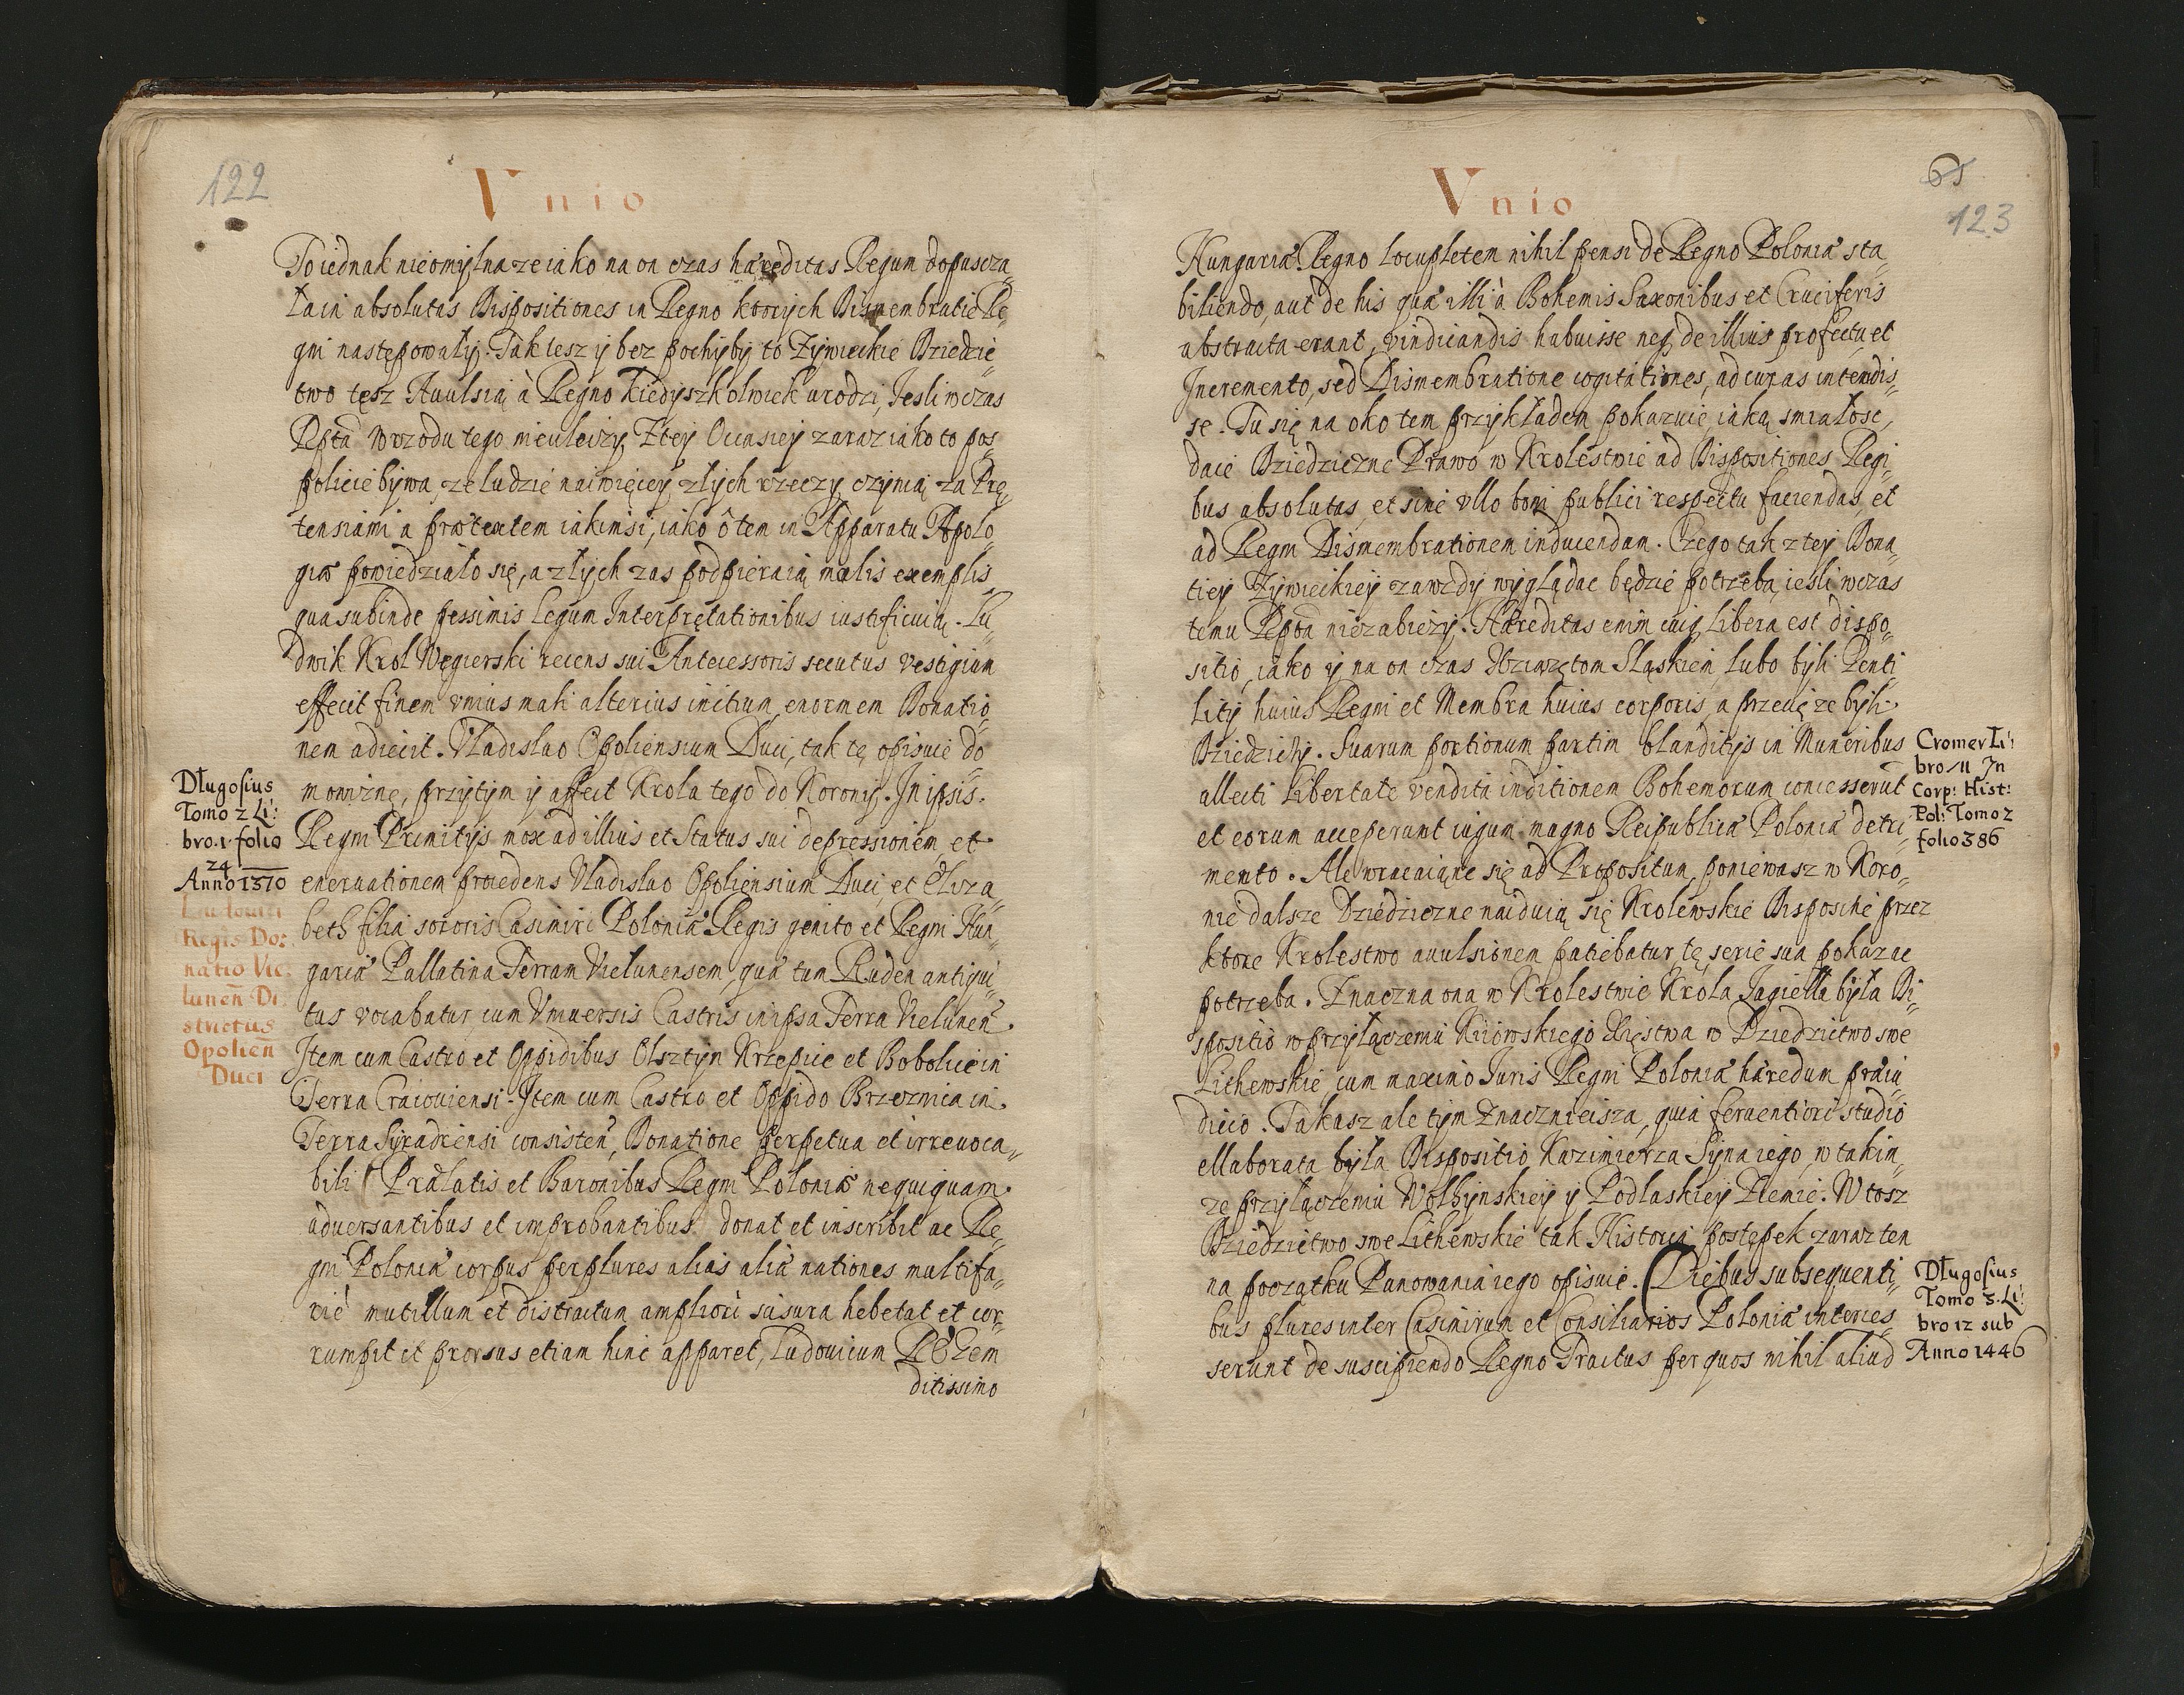 122
Vnio
To iednak nieomylna ze iako na on czas hæreditas Regum dopuscza„
ła in absolutas Dispositiones in Regno ktorych Dismembratie Re„
gni następowały. Tak tesz y bez pochyby to Zywieckie Dziedzic„
two tęsz Auulsią à Regno kiedyszkolwiek urodzi, Iesli wczas
Rpta wrzodu tego nieuleczy, Z tey Occasiey zaraz iako to pos„
policie bywa, ze ludzie naiwięcey złych rzeczy czynią za Prę„
tensiami a prætextem iakimsi, iako ô tem in Apparatu Apolo„
giæ powiedziało się, a złych zas podpieraią malis exemplis,
qua subinde pessimis Legum Interprętationibus iustificuią. Lu„
dwik Krol Węgierski recens sui Antecessoris secutus vestigium
effecit finem vnius mali alterius initium, enormem Donatio„
nem adiecit. Vladislao Opoliensium Duci, tak tę opisuie do„
mowiznę, przytym y affect Krola tego do Korony. In ipsis.
Regni Primitijs mox ad illius et Status sui depressionem, et
eneruationem procedens Vladislao Opoliensium Duci, et Eliza„
beth filia sororis Casimiri Poloniæ Regis genito et Regni Hun„
gariæ Pallatino Terram Vielunensem, quæ tum Ruden antiqui„
tus vocabatur, cum Vniuersis Castris in ipsa Terra Vielunen̄.
Item cum Castro et Oppidibus Olsztyn Krzepice et Bobolice in
Terra Cracouiensi. Item cum Castro et Oppido Brzeznica in.
Terra Syradiensi consisten̄, Donatione perpetua et irreuoca„
bili (Prælatis et Baronibus Regni Poloniæ nequiquam.
aduersantibus et improbantibus) donat et inscribit ac Re„
gni Poloniæ corpus per plures alias aliænationes multifa„
riè mutillum et distractum ampliori scisura hebetat et cor„
rumpit et prorsus etiam hinc apparet, Ludouicum REGem
ditissimo
Długosius
Tomo 2 Li:
bro.1. folio
24
Anno 1370
Ludouici
Regis Do:
natio Vie:
lunen̄ Di:
strictus
Opolien̄
Duci
65
123
Vnio
Hungariæ Regno locupletem nihil pensi de Regno Poloniæ sta„
biliendo, aut de his quæ illi à Bohemis Saxonibus et Cruciferis
abstracta erant, vindicandis habuisse neq; de illius profectu et
Incremento, sed Dismembratione cogitationes, ad curas intendis„
se. Tu się na oko tem przykładem pokazuie, iaką smiałosc,
daie Dziedziczne Prawo w Krolestwie ad Dispositiones Regi„
bus absolutas, et sine vllo boni publici respectu faciendas, et
ad Regni Dismembrationem inducendam. Czego tak z tey Dona„
tiey Zywieckiey zawzdy wyglądac będzie potrzeba, iesli wczas
temu Rpta niezabiezy. Hæreditas enim cuiq; Libera est dispo„
sitio, iako y na on czas Xiązętom Sląskiem lubo byli Penti„
lity huius Regni et Membra huius corporis, a przecię ze byli.
Dziedzicy. Suarum portionum partim blanditijs in Muneribus
allecti Libertate vendita in ditionem Bohemorum concesserūt
et eorum acceperunt iugum magno Reipublicæ Poloniæ detri„
mento. Ale wracaiąne się ad Propositum, poniewasz w Koro„
nie dalsze Dziedziczne naiduią się Krolewskie Disposicie przez
ktore Krolestwo auulsionem patiebatur, tę serie sua pokazac
potrzeba. Znaczna ona w Krolestwie Krola Jagiełła była Di„
spositio w przyłączeniu Kiiowskiego Xięstwa w Dziedzictwo swe
Lithewskie, cum maximo Iuris Regni Poloniæ hæredum præiu„
dicio. Takasz ale tym znacznieisza, quia feruentiori studio
ellaborata była Dispositio Kazimierza Syna iego, w takim„
ze przyłączeniu Wołhynskiey y Podlaskiey Ziemie. W tosz
Dziedzictwo swe Lithewskie tak Historia postępek zaraz ten
na początku Panowania iego opisuie. (Diebus subsequenti„
bus plures inter Casimirum et Consiliarios Poloniæ interces„
serunt de suscipiendo Regno Tractus per quos nihil aliud
Cromer Li:
bro 11 In
Corp: Hist:
Pol: Tomo 2
folio 386
Długosius
Tomo 3. Li:
bro 12 sub
Anno 1446